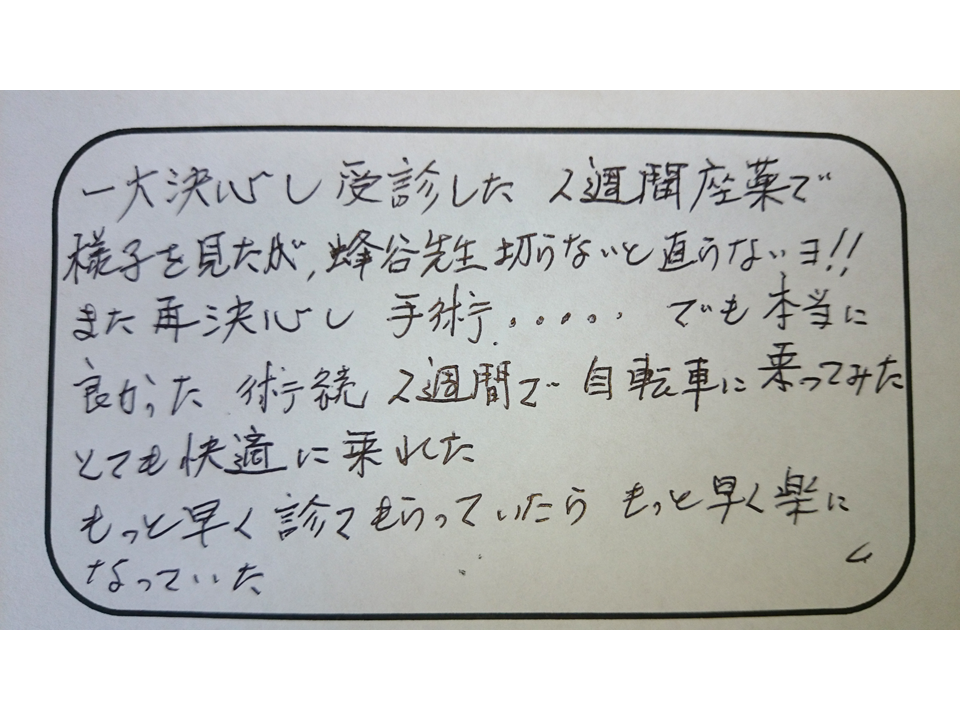 一大決心し 受診した 2週間座薬で
様子を見たが, 蜂谷先生 切らないと直らないヨ!!
また再決心し 手術..... でも本当に
良かった 術続 2週間で 自転車に乗ってみた
とても快適に乗れた
もっと早く診てもらっていたら もっと早く楽に
なっていた